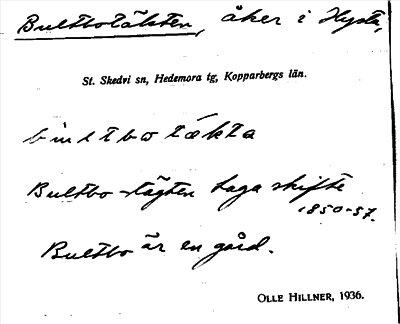 Bultbotäkten, åker i Hysta,
St. Skedvi sn, Hedemora tg, Kopparbergs län.
bultbotäkta
Bultbo-tägten Laga skifte
1850-57.
Bultbo är en gård.
OLLE HILLNER, 1936.